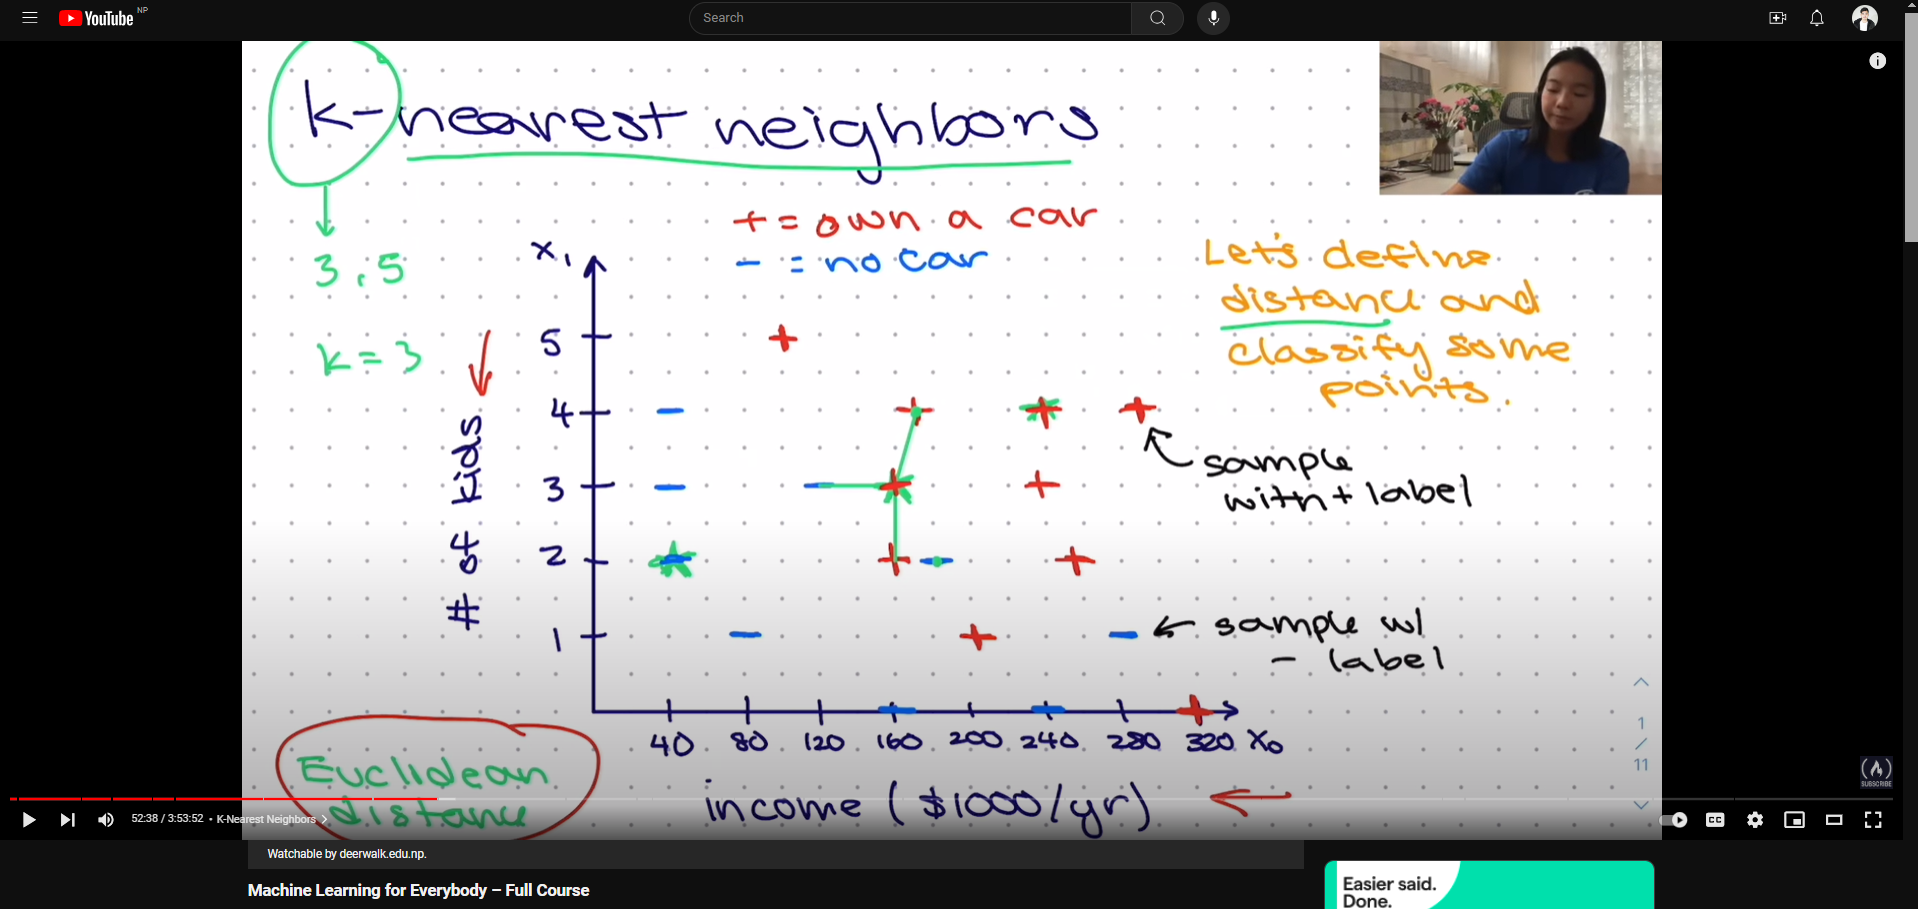 YouTube NP
Search
k-nearest neighbors
3, 5
k = 3
+ = own a car
- = no car
Let's define
distance and
classify some
points.
x₁
5
4
3
2
1
# of kids
sample
with + label
sample w/
- label
40 80 120 160 200 240 280 320 x₀
income ($1000/yr)
Euclidean
distance
1
/
11
SUBSCRIBE
52:38 / 3:53:52 • K-Nearest Neighbors >
CC
Watchable by deerwalk.edu.np.
Machine Learning for Everybody – Full Course
Easier said.
Done.